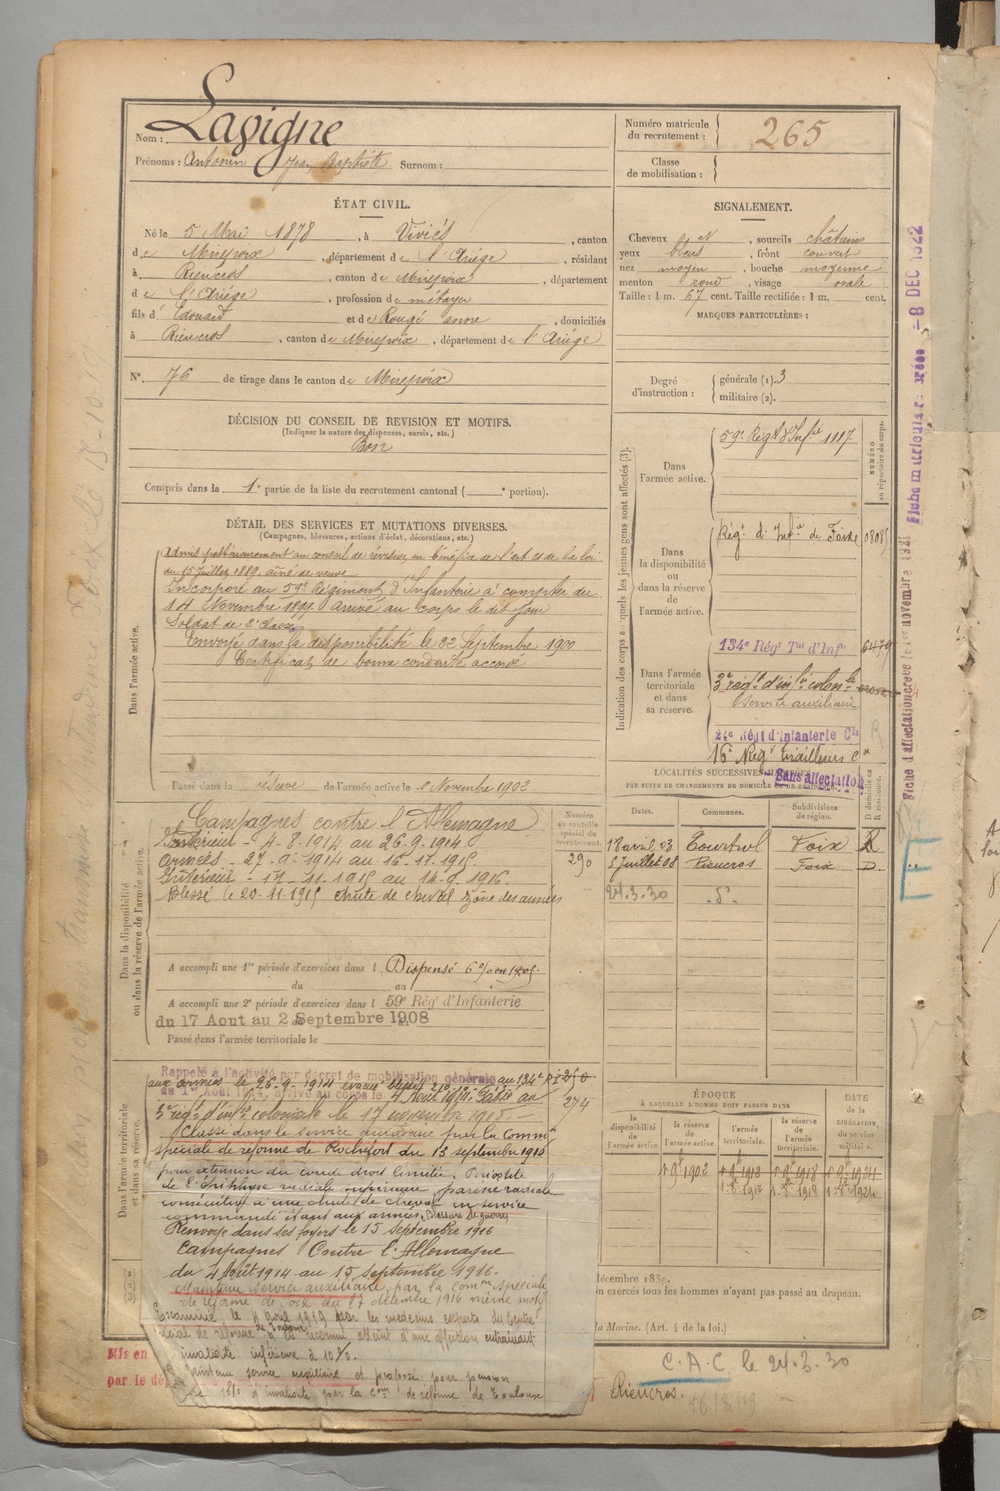 Nom : Lavigne
Prénoms : Antonin Jean Baptiste Surnom :
Numéro matricule du recrutement : 265
Classe de mobilisation :
ÉTAT CIVIL.
Né le 5 Mai 1878, à Viviès, canton
de Mirepoix, département de l'Ariège, résidant
à Rieucros, canton de Mirepoix, département
de l'Ariège, profession de métayer
fils d' Edouard et de Rougé Anne, domiciliés
à Rieucros, canton de Mirepoix, département de l'Ariège
N° 76 de tirage dans le canton de Mirepoix
SIGNALEMENT.
Cheveux et, sourcils châtains
yeux bleus, front couvert
nez moyen, bouche moyenne
menton rond, visage ovale
Taille : 1 m. 67 cent. Taille rectifiée : 1 m. cent.
MARQUES PARTICULIÈRES :
Degré d'instruction : générale (1). 3
militaire (2).
DÉCISION DU CONSEIL DE REVISION ET MOTIFS.
(Indiquer la nature des dispenses, sursis, etc.)
Bon
Compris dans la 1e partie de la liste du recrutement cantonal ( e portion).
DÉTAIL DES SERVICES ET MUTATIONS DIVERSES.
(Campagnes, blessures, actions d'éclat, décorations, etc.)
Dans l'armée active.
Admis postérieurement au conseil de révision au bénéfice de l'art de la loi
du 15 Juillet 1889. aîné de veuve
Incorporé au 59e Régiment d'Infanterie à compter du
14 Novembre 1899 arrivé au corps le dit jour
Soldat de 2e classe
Envoyé dans la disponibilité le 22 Septembre 1900
Certificat de bonne conduite accordé
Passé dans la réserve de l'armée active le 1 Novembre 1902
Dans la disponibilité
ou dans la réserve de l'armée active.
Campagnes contre l'Allemagne
Intérieur - 4-8-1914 au 26-9-1914
armées - 27-9-1914 au 16-11-1915
Intérieur - 17-11-1915 au 14-9-1916.
Blessé le 20-11-1915 chute de cheval zône des armées
Numéro au contrôle spécial du recrutement.
290
A accompli une 1re période d'exercices dans l Dispensé
du au
A accompli une 2e période d'exercices dans l 59e Régt d'Infanterie
du 17 Aout au 2 Septembre 1908
Passé dans l'armée territoriale le
Dans l'armée territoriale
et dans sa réserve.
Rappelé à l'activité par décret de mobilisation générale au 134e R.I.
du 1er Août 1914, arrivé au corps le 4 Août 1914.
aux armées le 26-9-1914
274
3e régt d'infie coloniale le 17 novembre 1915.
Classé dans le service auxiliaire par la Common
spéciale de réforme de Rochefort du 13 septembre 1916
pour extension du coude droit limitée
de l'Epiphyse radiale supérieure parésie radiale
consécutive à une chute de cheval en service
commandé étant aux armées. Blessure de guerre
Renvoyé dans ses foyers le 15 septembre 1916
Campagnes Contre l'Allemagne
du 4 Août 1914 au 15 septembre 1916.
Maintenu service auxiliaire par la Comon spéciale
de réforme de Foix du 17 décembre 1916 même motif
Examiné le 4 avril 1919 par les médecins experts du Centre
spécial de réforme reconnu atteint d'une affection entrainant
invalidité inférieure à 10%.
Maintenu service auxiliaire et proposé pour pension
10% d'invalidité par la com de réforme de Toulouse
Mis en
par le dé
Indication des corps auxquels les jeunes gens sont affectés (3).
Dans l'armée active.
59e Régt d'Infie 1117
NUMÉRO au répertoire du corps.
Dans la disponibilité ou dans la réserve de l'armée active.
Régt d'Infie de Foix
Dans l'armée territoriale et dans sa réserve.
134e Régt Tal d'Infie
3e régt d'infie colonle
Service auxiliaire
24e Régt d'Infanterie Cle
16e Régt Tirailleurs
Sans affectation
LOCALITÉS SUCCESSIVES
PAR SUITE DE CHANGEMENTS DE DOMICILE OU DE RÉSIDENCE.
Dates. Communes. Subdivisions de région. D domicile ou R résidence.
18 avril 03 Tourtrol Foix R
5 Juillet 08 Rieucros Foix D.
24.3.30 do
ÉPOQUE
À LAQUELLE L'HOMME DOIT PASSER DANS
la disponibilité de l'armée active. la réserve de l'armée active. l'armée territoriale. la réserve de l'armée territoriale.
DATE de la LIBÉRATION du service militaire
décembre 1889.
en exercés tous les hommes n'ayant pas passé au drapeau.
la Marine. (Art. 4 de la loi.)
C.A.C. le 24.3.30
Rieucros.
Fiche d'affectation créée le 1er novembre 1921
Fiche matricule créée - 8 DEC 1922